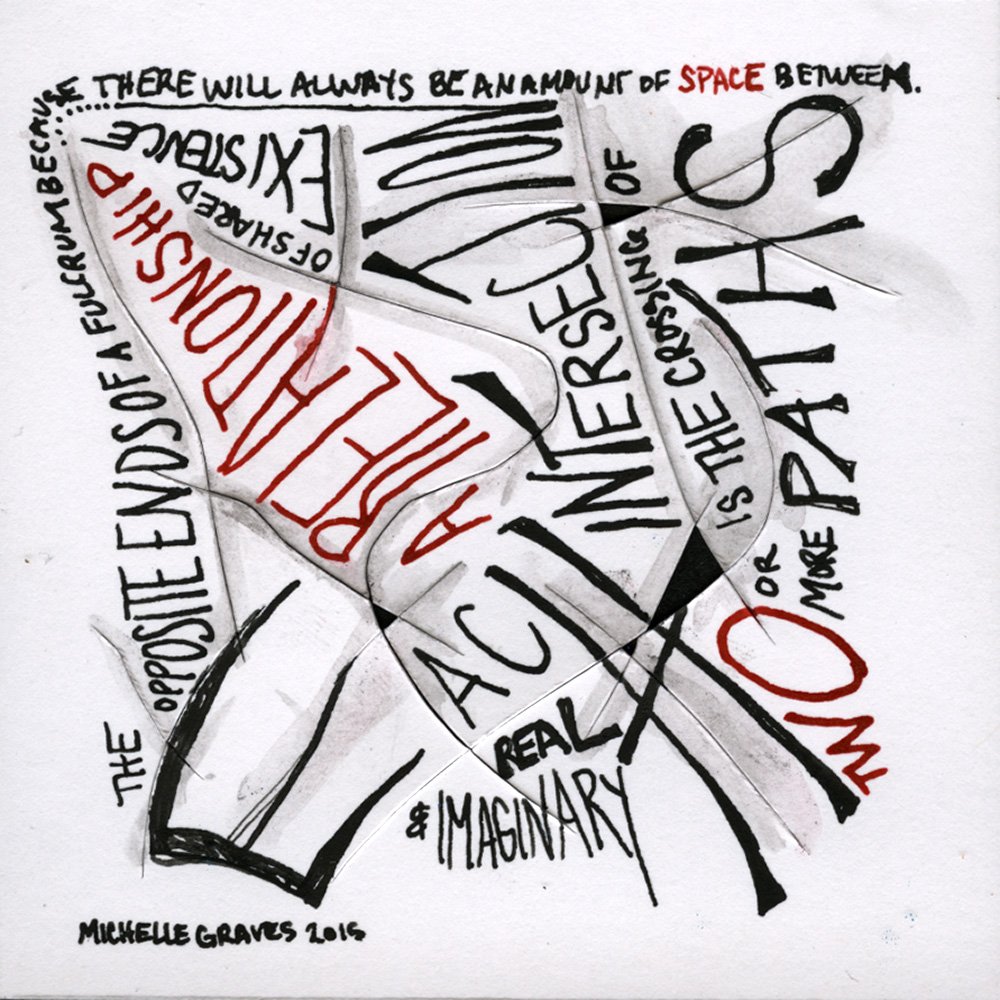 AC
INTERSECTION
IS THE CROSSING OF
TWO
OR
MORE
PATHS
REAL
& IMAGINARY
A RELATIONSHIP
OF SHARED
EXISTENCE
THE OPPOSITE ENDS OF A FULCRUM BECAUSE
THERE WILL ALWAYS BE AN AMOUNT OF SPACE BETWEEN.
MICHELLE GRAVES 2015